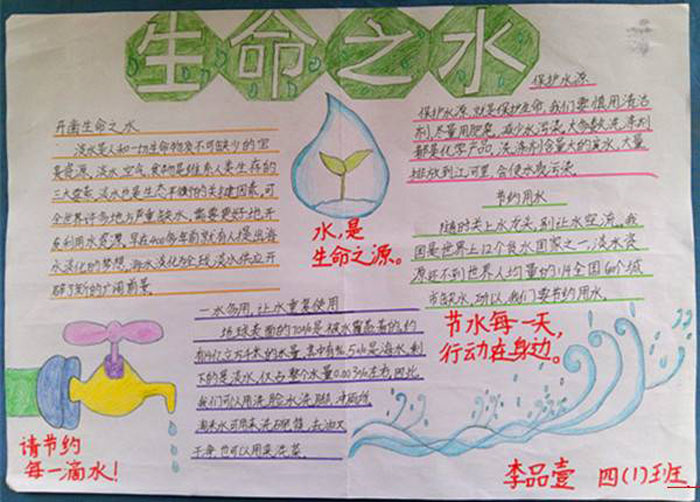 生命之水
开凿生命之水
淡水是人和一切生命物质不可缺少的宝
贵资源,淡水、空气、食物是维系人类生存的
三大要素,淡水也是生态平衡的关键因素,可
全世界许多地方严重缺水,需要更好地开
发利用水资源,早在400多年前就有人提出海
水淡化的梦想,海水淡化为全球淡水供应开
辟了新的广阔前景
水,是
生命之源。
保护水源
保护水源,就是保护生命,我们要慎用清洁
剂,尽量用肥皂,减少水污染,大多数洗涤剂
都是化学产品,洗涤剂含量大的废水,大量
排放到江河里,会使水质污染.
节约用水
随时关上水龙头,别让水空流。我
国是世界上12个贫水国家之一,淡水资
源还不到世界人均量的1/4全国600个城
市缺水,所以,我们要节约用水.
一水多用,让水重复使用
地球表面的70%是被水覆盖着的,约
有14亿立方千米的水量,其中有96.5%是海水,剩
下的是淡水,仅占整个水量0.003%左右,因此
我们可以用洗脸水洗脚,冲厕所
淘米水可用来洗碗筷,去油又
干净,也可以用来浇菜
节水每一天,
行动在身边。
请节约
每一滴水!
李品壹 四(1)班